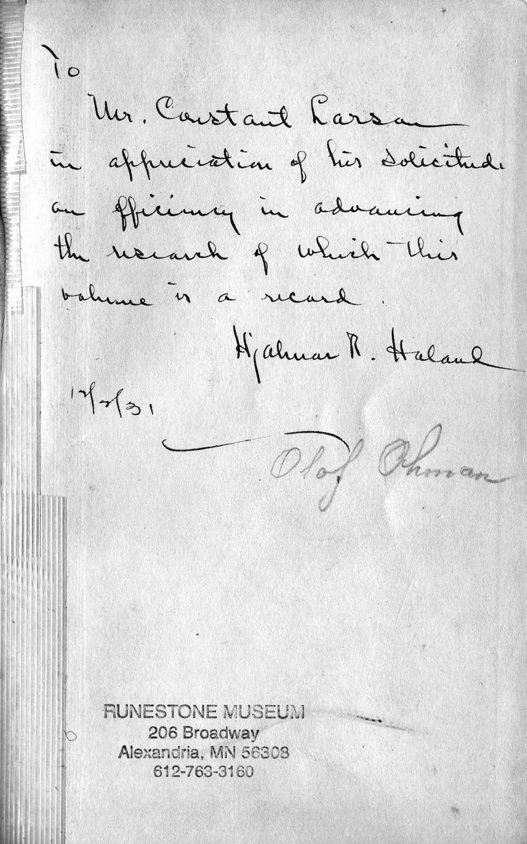 To
Mr. Constant Larson
in appreciation of his solicitude
an efficiency in advancing
the research of which this
volume is a record.
Hjalmar R. Holand
12/2/31
Olof Ohman
RUNESTONE MUSEUM
206 Broadway
Alexandria, MN 56308
612-763-3160